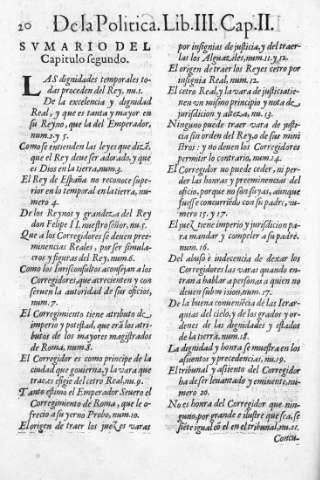 20 De la Politica. Lib. III. Cap. II.
SVMARIO DEL
Capitulo segundo.
LAS dignidades temporales to-
das proceden del Rey, nu. 1.
De la excelencia y dignidad
Real, y que es tanta y mayor en
su Reyno, que la del Emperador,
num. 2. y 5.
Como se entienden las leyes que dizē,
que el Rey deue ser adorado, y que
es Dios en la tierra, num. 3.
El Rey de España no reconoce supe-
rior en lo temporal en la tierra, nu-
mero 4.
De los Reynos y grandeza del Rey
don Felipe II. nuestro señor, nu. 5.
Que a los Corregidores se deuen pree-
minencias Reales, por ser simula-
cros y figuras del Rey, num. 6.
Como los Iurisconsultos aconsejan a los
Corregidores, que acrecienten y con
seruen la autoridad de sus oficios,
num. 7.
El Corregimiento tiene atributo de
imperio y potestad, que erā los atri-
butos de los mayores magistrados
de Roma, num. 8.
El Corregidor es como principe de la
ciudad que gouierna, y la vara que
trae, es efigie del cetro Real, nu. 9.
Tanto estimo el Emperador Seuero el
Corregimiento de Roma, que le o-
frecio a su yerno Probo, num. 10.
El origen de traer los juezes varas
por insignias de justicia, y del traer-
las los Alguaziles, num. 11. y 12.
El origen de traer los Reyes cetro por
insignia Real, num. 12.
El cetro Real, y la vara de justicia tie-
nen vn mismo principio y nota de
jurisdicion y alteza, nu. 13.
Ninguno puede traer vara de justi-
cia sin orden del Rey, o de sus mini
stros: y no deuen los Corregidores
permitir lo contrario, num. 14.
El Corregidor no puede ceder, ni per-
der las honras y preeminencias del
oficio, porque no son suyas, aunque
fuesse concurriēdo con su padre, nu-
mero 15. y 17.
El juez tiene imperio y jurisdicion pa-
ra mandar y compeler a su padre,
num. 16.
Del abuso è indecencia de dexar los
Corregidores las varas quando en-
tran a hablar a personas a quien no
deuen submission, num. 17.
De la buena conueniēcia de las Ierar-
quias del cielo, y de los grados y or-
denes de las dignidades y estados
de la tierra, num. 18.
La dignidad y honra se muestra en los
assientos y precedencias, nu. 19.
El tribunal y assiento del Corregidor
ha de ser leuantado y eminente, nu-
mero 20.
No es honra del Corregidor que nin-
guno, por grande e ilustre que sea, se
siēte igual cō el en el tribunal, nu. 21.
Conue-